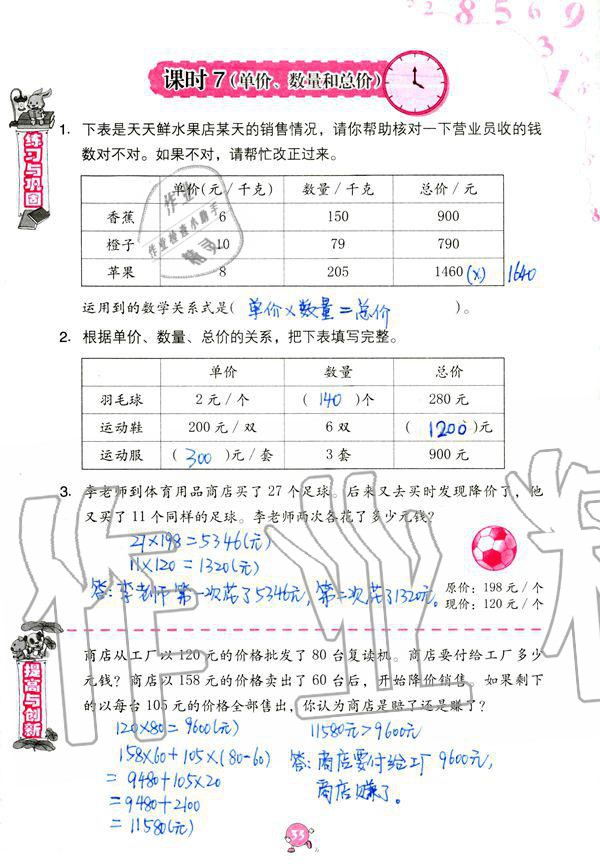 2 8 5 6 9
3
1
8
课时7(单价、数量和总价)
练习与巩固
1. 下表是天天鲜水果店某天的销售情况，请你帮助核对一下营业员收的钱
数对不对。如果不对，请帮忙改正过来。
单价(元/千克) 数量/千克 总价/元
香蕉 6 150 900
橙子 10 79 790
苹果 8 205 1460 (x) 1640
运用到的数学关系式是( 单价×数量=总价 )。
2. 根据单价、数量、总价的关系，把下表填写完整。
单价 数量 总价
羽毛球 2元/个 (140)个 280元
运动鞋 200元/双 6双 (1200)元
运动服 (300)元/套 3套 900元
3. 李老师到体育用品商店买了27个足球。后来又去买时发现降价了，他
又买了11个同样的足球。李老师两次各花了多少元钱？
27×198=5346(元)
11×120=1320(元)
答:李老师第一次花了5346元，第二次花了1320元。
原价：198元/个
现价：120元/个
提高与创新
商店从工厂以120元的价格批发了80台复读机。商店要付给工厂多少
元钱？商店以158元的价格卖出了60台后，开始降价销售，如果剩下
的以每台105元的价格全部售出，你认为商店是赔了还是赚了？
120×80=9600(元)
158×60+105×(80-60)
=9480+105×20
=9480+2100
=11580(元)
11580元>9600元
答:商店要付给工厂9600元,
商店赚了。
33
作业
作业检查小助手
精灵
作业精